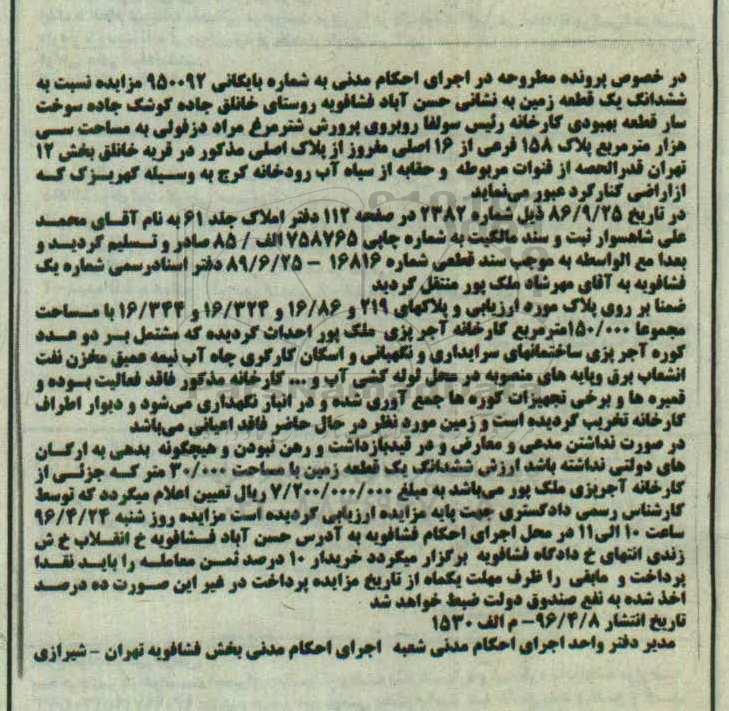 در خصوص پرونده مطروحه در اجرای احکام مدنی به شماره بایگانی ۹۵۰۰۹۲ مزایده نسبت به
ششدانگ یک قطعه زمین به نشانی حسن آباد فشافویه روستای خانلق جاده کوشک جاده سوخت
سار قطعه بهبودی کارخانه رئیس سولفا روبروی پرورش شترمرغ مراد دزفولی به مساحت سی
هزار مترمربع پلاک ۱۵۸ فرعی از ۱۶ اصلی مفروز از پلاک اصلی مذکور در قریه خانلق بخش ۱۲
تهران قدرالحصه از قنوات مربوطه و حقابه از سیاه آب رودخانه کرج به وسیله کهریزک که
از اراضی کنارگرد عبور می‌نماید
در تاریخ ۸۶/۹/۲۵ ذیل شماره ۲۳۸۲ در صفحه ۱۱۲ دفتر املاک جلد ۶۱ به نام آقای محمد
علی شاهسوار ثبت و سند مالکیت به شماره چاپی ۷۵۸۷۶۵ الف / ۸۵ صادر و تسلیم گردید و
بعدا مع الواسطه به موجب سند قطعی شماره ۱۶۸۱۶ – ۸۹/۶/۲۵ دفتر اسنادرسمی شماره یک
فشافویه به آقای مهرشاد ملک پور منتقل گردید
ضمنا بر روی پلاک مورد ارزیابی و پلاکهای ۲۱۹ و ۱۶/۸۶ و ۱۶/۳۲۴ و ۱۶/۳۴۴ با مساحت
مجموعا ۱۵۰/۰۰۰مترمربع کارخانه آجر پزی ملک پور احداث گردیده که مشتمل بر دو عدد
کوره آجر پزی ساختمانهای سرایداری و نگهبانی و اسکان کارگری چاه آب نیمه عمیق مخزن نفت
انشعاب برق وپایه های منصوبه در محل لوله کشی آب و ... کارخانه مذکور فاقد فعالیت بوده و
قمیره ها و برخی تجهیزات کوره ها جمع آوری شده و در انبار نگهداری می‌شود و دیوار اطراف
کارخانه تخریب گردیده است و زمین مورد نظر در حال حاضر فاقد اعیانی می‌باشد
در صورت نداشتن مدعی و معارض و در قیدبازداشت و رهن نبودن و هیچگونه بدهی به ارکان
های دولتی نداشته باشد ارزش ششدانگ یک قطعه زمین با مساحت ۳۰/۰۰۰ متر که جزئی از
کارخانه آجرپزی ملک پور می‌باشد به مبلغ ۷/۲۰۰/۰۰۰/۰۰۰ ریال تعیین اعلام میگردد که توسط
کارشناس رسمی دادگستری جهت پایه مزایده ارزیابی گردیده است مزایده روز شنبه ۹۶/۴/۲۴
ساعت ۱۰ الی۱۱ در محل اجرای احکام فشافویه به آدرس حسن آباد فشافویه خ انقلاب خ ش
زندی انتهای خ دادگاه فشافویه برگزار میگردد خریدار ۱۰ درصد ثمن معامله را باید نقدا
پرداخت و مابقی را ظرف مهلت یکماه از تاریخ مزایده پرداخت در غیر این صورت ده درصد
اخذ شده به نفع صندوق دولت ضبط خواهد شد
تاریخ انتشار ۹۶/۴/۸– م الف ۱۵۳۰
مدیر دفتر واحد اجرای احکام مدنی شعبه اجرای احکام مدنی بخش فشافویه تهران – شیرازی